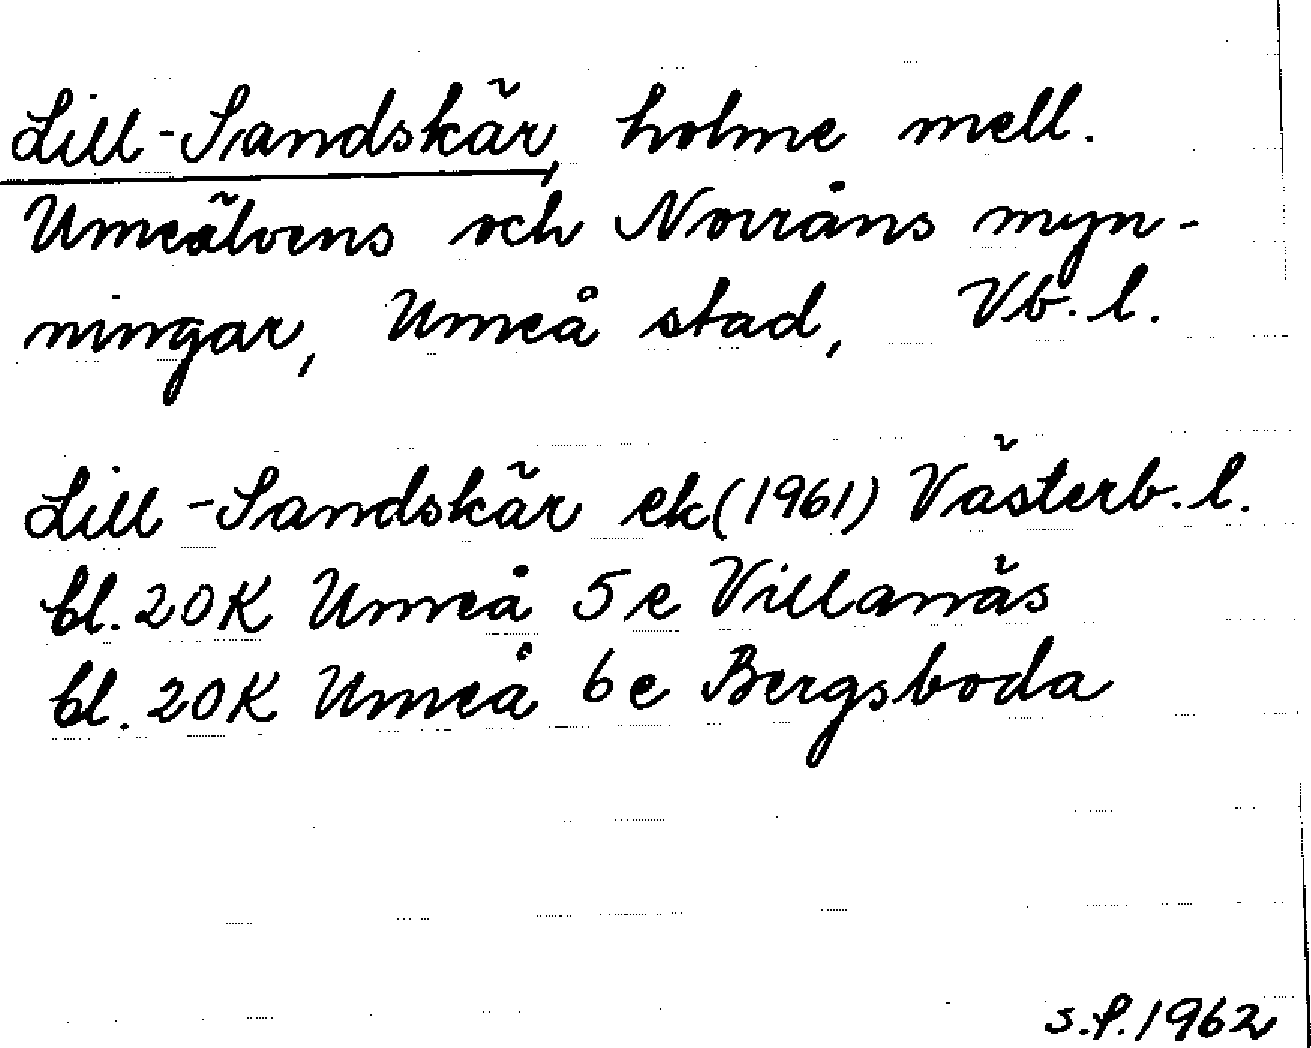 Lill-Sandskär, holme mell.
Umeälvens och Norråns myn-
ningar, Umeå stad, Vb. l.
Lill-Sandskär ek (1961) Västerb. l.
bl. 20K Umeå 5e Villanäs
bl. 20K Umeå 6e Bergsboda
s.f. 1962